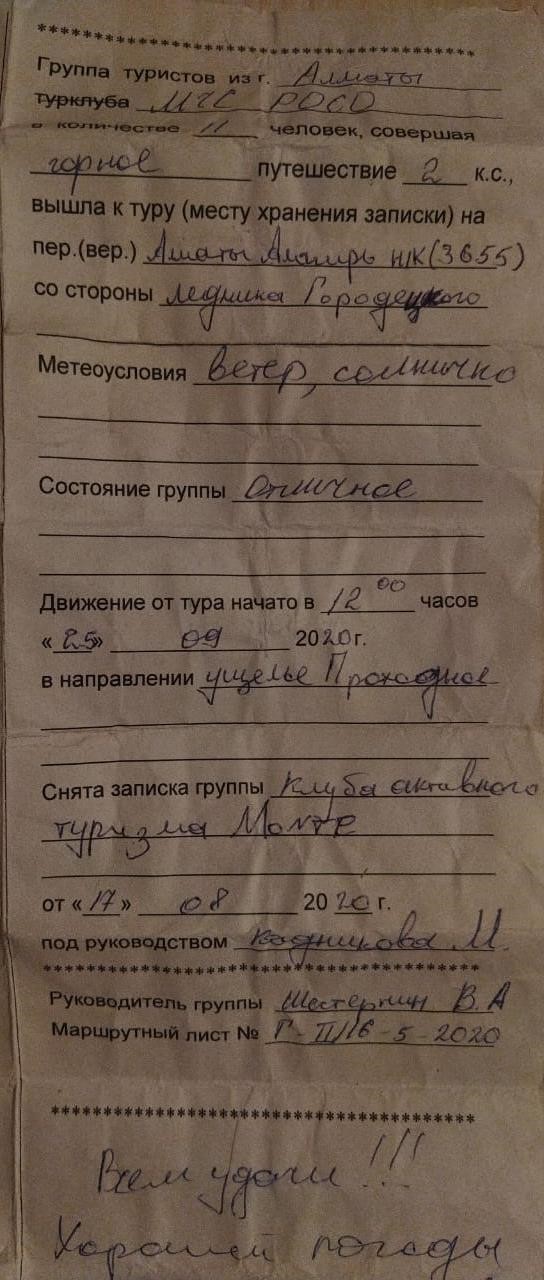 ****************************************
Группа туристов из г. Алматы
турклуба МЧС РОСО
в количестве 11 человек, совершая
горное путешествие 2 к.с.,
вышла к туру (месту хранения записки) на
пер.(вер.) Алматы Алагирь н/к (3655)
со стороны ледника Городецкого
Метеоусловия ветер, солнечно
Состояние группы отличное
Движение от тура начато в 12 00 часов
« 25» 09 2020 г.
в направлении ущелье Проходное
Снята записка группы клуба активного
туризма Монте
от « 17 » 08 20 20 г.
под руководством Кадникова М.
****************************************
Руководитель группы Шестернин В.А
Маршрутный лист № Г-II/16-5-2020
****************************************
Всем удачи!!!
Хорошей погоды